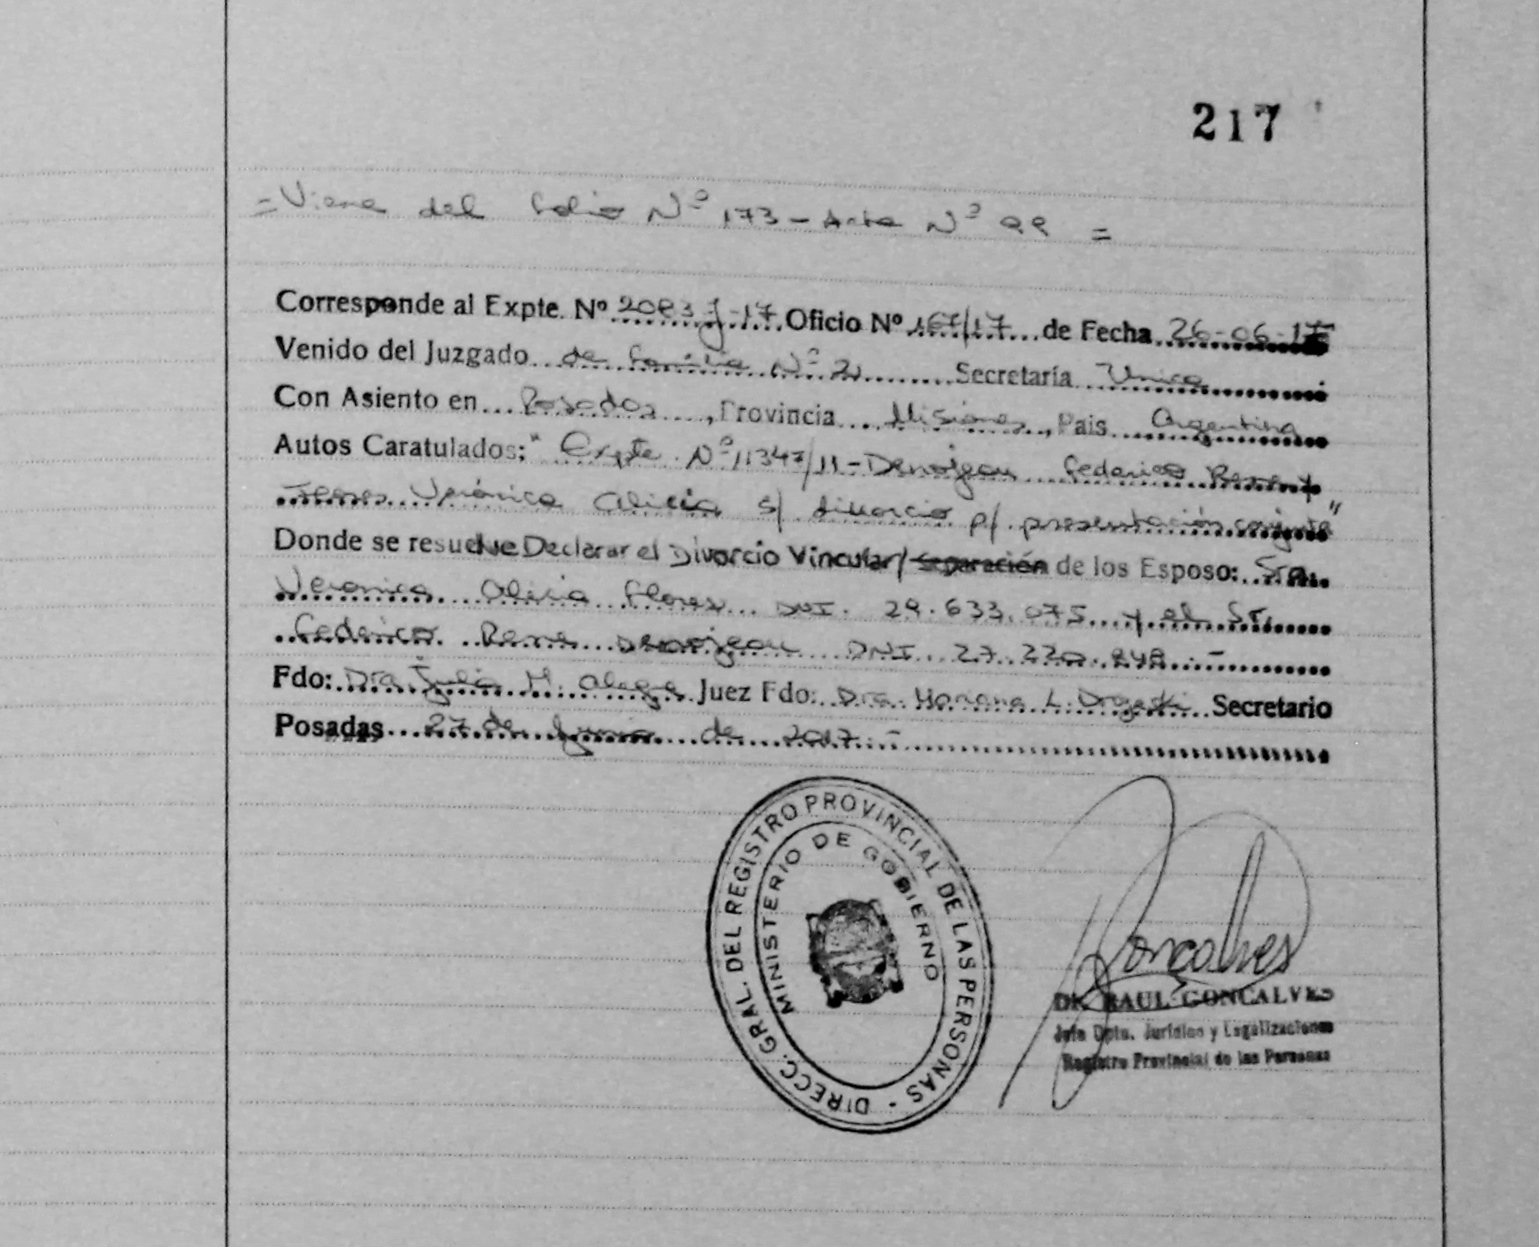 217
= Viene del folio Nº 173 - Acta Nº 99 =
Corresponde al Expte. Nº 2083 J-17 Oficio Nº 167/17 de Fecha 26-06-17
Venido del Juzgado de Familia Nº 2 Secretaría Unica
Con Asiento en Posadas, Provincia Misiones, Pais Argentina
Autos Caratulados: "Expte Nº 11347/11 - Denojean Federico Rene y
Flores Verónica Alicia s/ divorcio p/ presentación conjunta"
Donde se resuelve Declarar el Divorcio Vincular/ Separación de los Esposo: Sra.
Veronica Alicia Flores DNI. 29.633.075 y el Sr.
Federico Rene Denojean DNI 27.220.
Fdo: Dra Julia M. Alegre Juez Fdo: Dra. Mariana L. Secretario
Posadas 27 de Junio de 2017.-
DIRECC. GRAL. DEL REGISTRO PROVINCIAL DE LAS PERSONAS -
MINISTERIO DE GOBIERNO
Goncalves
Dr. RAUL GONCALVES
Jefe Dpto. Jurídico y Legalizaciones
Registro Provincial de las Personas